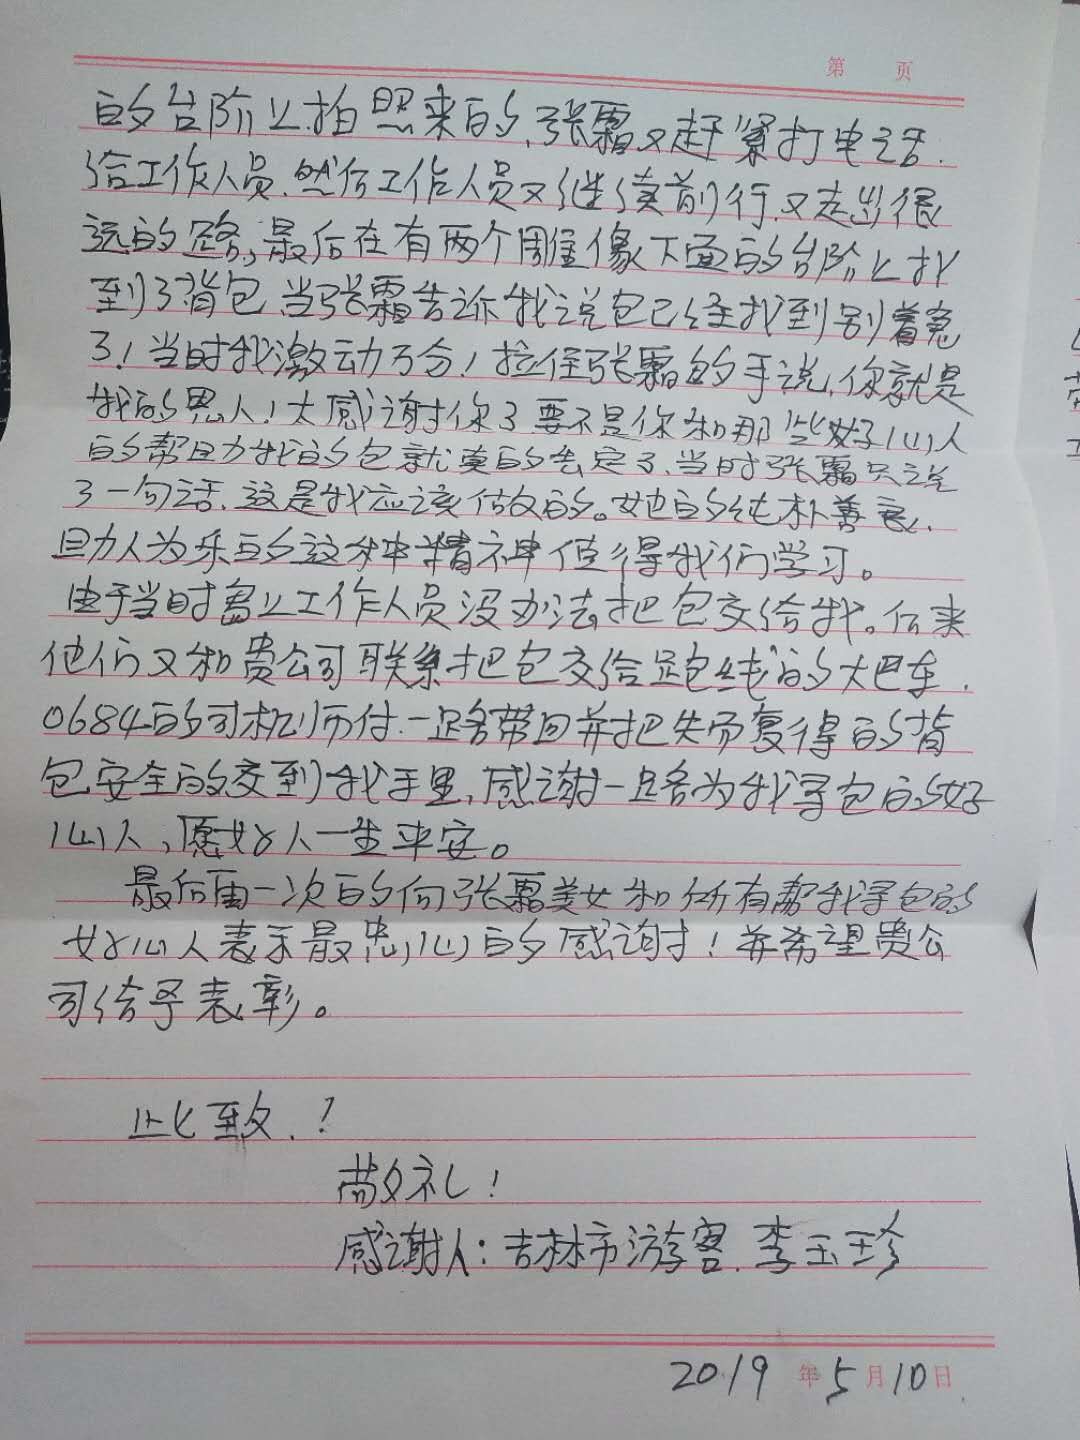 第 页
的台阶上拍照来的,张霜又赶紧打电话.
给工作人员.然后工作人员又继续前行,又走出很
远的路,最后在有两个雕像下面的台阶上找
到了背包,当张霜告诉我说包已经找到别着急
了!当时我激动万分!拉住张霜的手说,你就是
我的恩人!太感谢你了要不是你和那些好心人
的帮助我的包就真的丢定了.当时张霜只说
了一句话,这是我应该做的。她的纯朴善良,
助人为乐的这种精神值得我们学习。
由于当时岛上工作人员没办法把包交给我。后来
他们又和贵公司联系把包交给跑线的大巴车.
0684的司机师付.一路带回并把失而复得的背
包安全的交到我手里,感谢一路为我寻包的好
心人,愿好人一生平安。
最后再一次的向张霜美女和所有帮我寻包的
好心人表示最忠心的感谢!并希望贵公
司给予表彰。
此致.!
敬礼!
感谢人:吉林市游客.李玉珍
2019 年 5 月 10 日